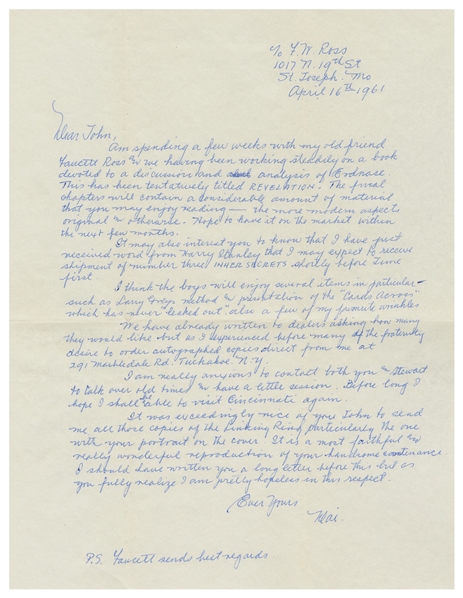 c/o F.W. Ross
1017 N. 19th St
St. Joseph. Mo
April 16th 1961
Dear John,
Am spending a few weeks with my old friend
Faucett Ross & we having been working steadily on a book
devoted to a discussion and analysis of Erdnase.
This has been tentatively titled REVELATION. The final
chapters will contain a considerable amount of material
that you may enjoy reading — the more modern aspects
original & otherwise. Hope to have it on the market within
the next few months.
It may also interest you to know that I have just
received word from Harry Stanley that I may expect to receive
shipment of number three INNER SECRETS shortly before June
first
I think the boys will enjoy several items in particular —
such as Larry Grey's method & presentation of the "Cards Across"
which has never leaked out. also a few of my favorite
We have already written to dealers asking how many
they would like but as I experienced before many of the fraternity
desire to order autographed copies direct from me at
291 Marbledale Rd. Tuckahoe. N.Y.
I am really anxious to contact both you & Stewart
to talk over old times & have a little session. Before long I
hope I shall be able to visit Cincinnati again.
It was exceedingly nice of you John to send
me all those copies of the Linking Ring particularly the one
with your portrait on the cover. It is a most faithful &
really wonderful reproduction of your handsome countenance.
I should have written you a long letter before this but as
you fully realize I am pretty hopeless in this respect.
Ever Yours
Dai.
P.S. Faucett sends best regards